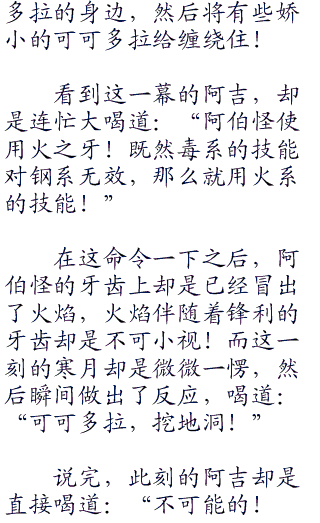 多拉的身边，然后将有些娇
小的可可多拉给缠绕住！
看到这一幕的阿吉，却
是连忙大喝道：“阿伯怪使
用火之牙！既然毒系的技能
对钢系无效，那么就用火系
的技能！”
在这命令一下之后，阿
伯怪的牙齿上却是已经冒出
了火焰，火焰伴随着锋利的
牙齿却是不可小视！而这一
刻的寒月却是微微一愣，然
后瞬间做出了反应，喝道：
“可可多拉，挖地洞！”
说完，此刻的阿吉却是
直接喝道：“不可能的！